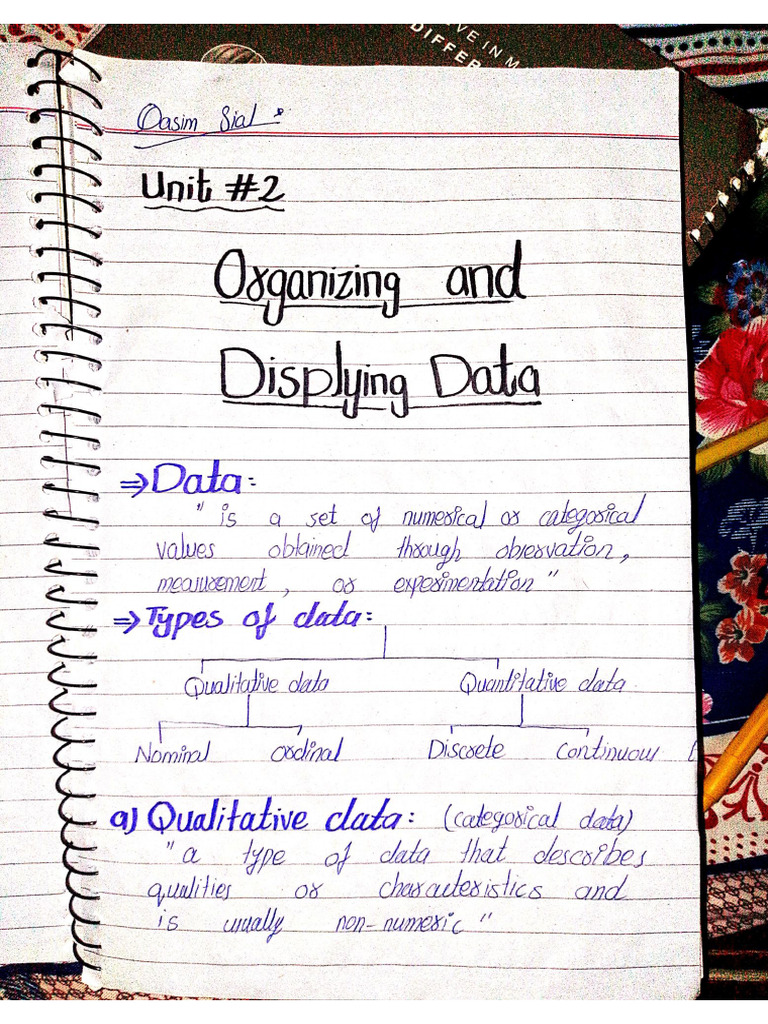 VE IN M
DIFFER
Qasim Sial
Unit #2
Organizing and
Displying Data
⇒ Data:
" is a set of numerical or categorical
values obtained through observation,
measurement, or experimentation "
⇒ Types of data:
Qualitative data Quantitative data
Nominal ordinal Discrete Continuous
a) Qualitative data: (categorical data)
" a type of data that describes
qualities or characteristics and
is usually non-numeric "